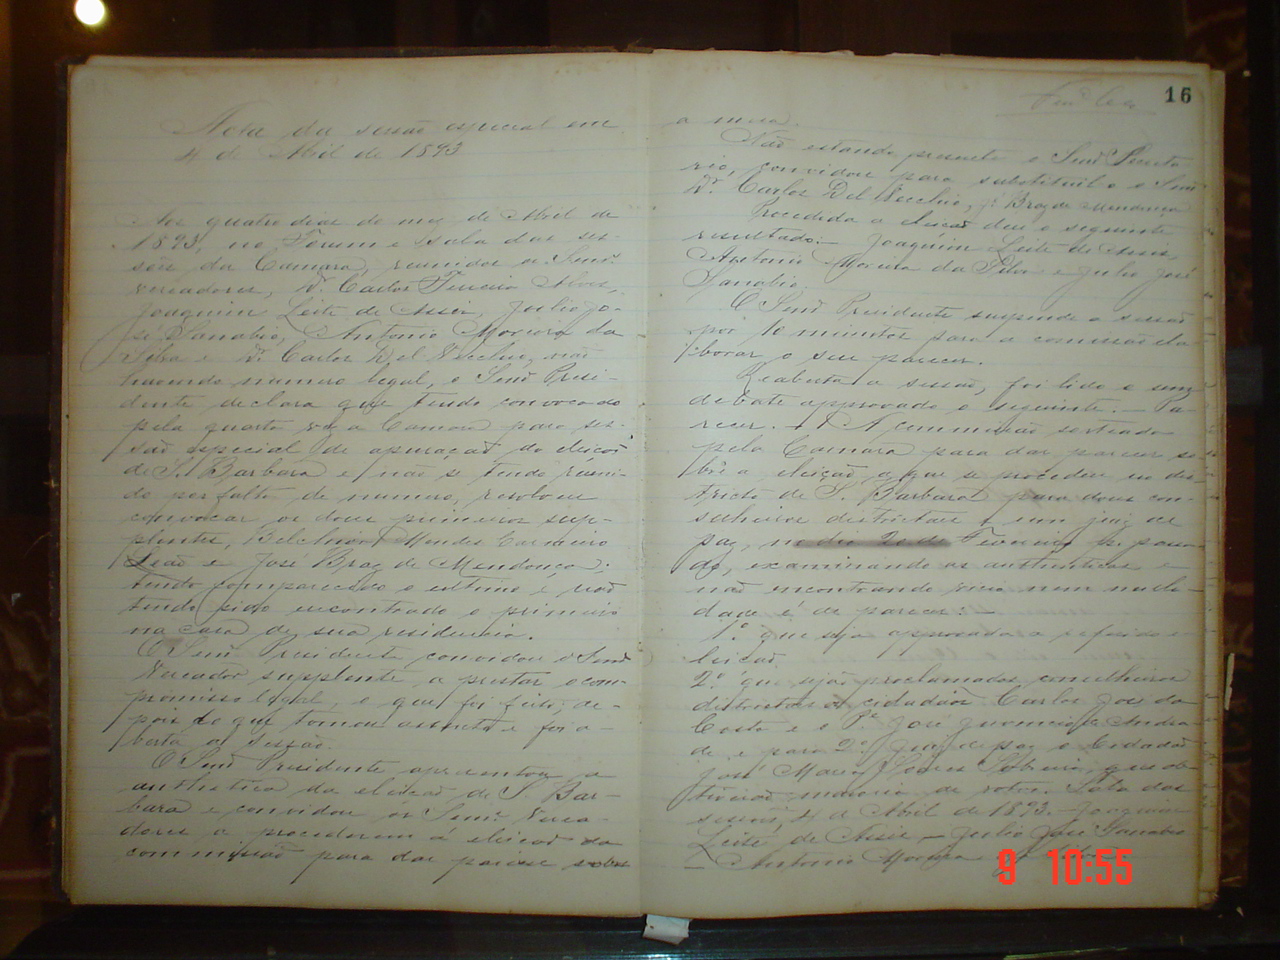 Acta da sessão especial em
4 de Abril de 1893
Aos quatro dias do mez de Abril de
1893, no Forum e Sala das ses-
sões da Camara, reunidos os Senrs.
vereadores, Dr. Carlos Ferreira Alves,
Joaquim Leite de Assis, Julio Jo-
sé Sanabio, Antonio Moreira da
Silva e Dr. Carlos Del Vecchio, não
havendo numero legal, o Senr. Presi-
dente declara que tendo convocado
pela quarta vez a Camara para ses-
são especial de apuração da eleição
de S. Barbara e não se tendo reuni-
do por falta de numero, resolveu
convocar os dous primeiros sup-
plentes, Belchior Mendes Carneiro
Leão e José Braz de Mendonça;
tendo comparecido o ultimo e não
tendo sido encontrado o primeiro
na casa de sua residencia.
O Senr. Presidente convidou o Senr.
Vereador supplente a prestar o com-
promisso legal, o que foi feito, de-
pois do que tomou assento e foi a-
berta a sessão.
O Senr. Presidente apresentou a
authentica da eleição de S. Bar-
bara e convidou os Senrs. Verea-
dores a procederem á eleição da
commissão para dar parecer sobre
16
a mesa.
Não estando presente o Senr. Secreta-
rio, convidou para substituil-o o Senr.
Dr. Carlos Del Vecchio, Braz de Mendonça
Procedida a eleição deu o seguinte
resultado: Joaquim Leite de Assis,
Antonio Moreira da Silva e Julio José
Sanabio.
O Senr. Presidente suspende a sessão
por 10 minutos para a comissão ela-
borar o seu parecer.
Reaberta a sessão, foi lido e sem
debate approvado o seguinte. — Pa-
recer. A commissão sorteada
pela Camara para dar parecer so-
bre a eleição a que se procedeu no dis-
tricto de S. Barbara para dous con-
selheiros districtaes e um juiz de
paz, no dia 20 de Fevereiro pp. passa-
do, examinando as authenticas e
não encontrando vicio nem nulli-
dade é de parecer: —
1.º que seja approvada a referida e-
leição.
2.º que sejão proclamados conselheiros
districtaes os cidadãos Carlos José da
Costa e o Pe. José Ignacio de Andra-
de e para 2.º juiz de paz o Cidadão
José Maria Soares Sobrinho, que ob-
tiverão maioria de votos. Sala das
sessões, 4 de Abril de 1893. Joaquim
Leite de Assis — Julio José Sanabio
— Antonio Moreira
9 10:55